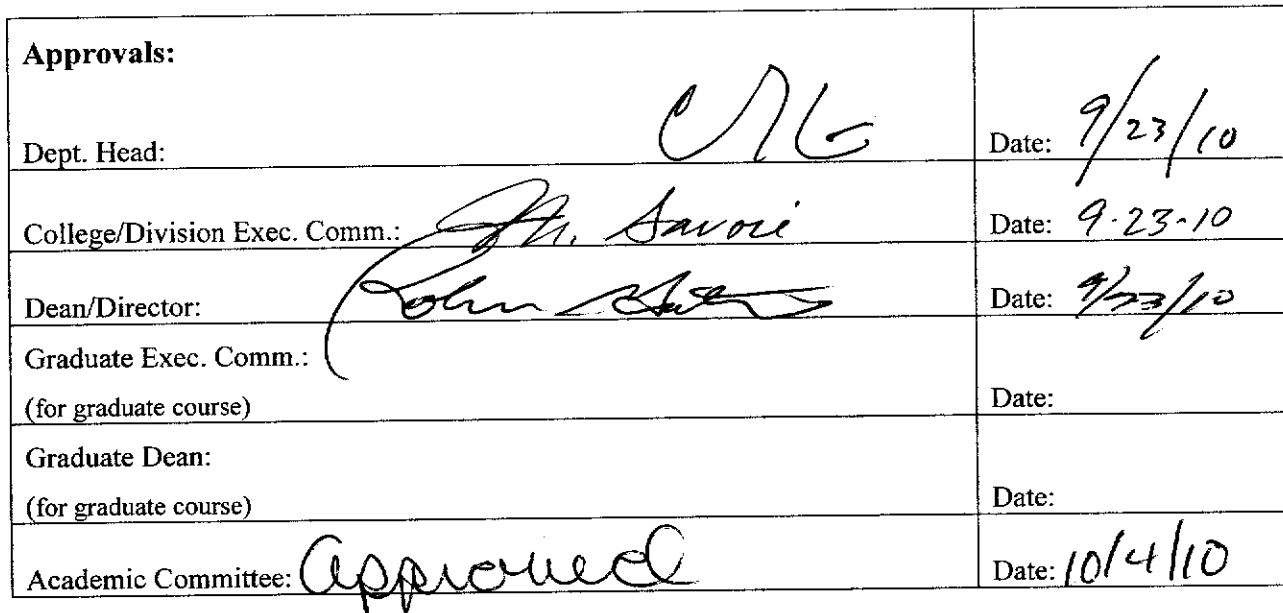 Approvals:
Dept. Head: Date: 9/23/10
College/Division Exec. Comm.: M. Savoie Date: 9-23-10
Dean/Director: John Date: 9/23/10
Graduate Exec. Comm.:
(for graduate course) Date:
Graduate Dean:
(for graduate course) Date:
Academic Committee: approved Date: 10/4/10